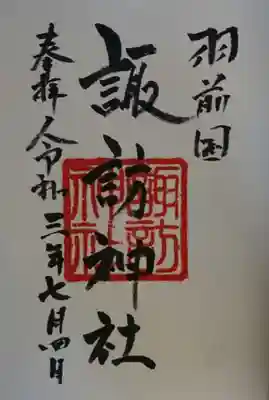 羽前国
諏訪神社
奉拝 令和三年七月四日
諏訪神社